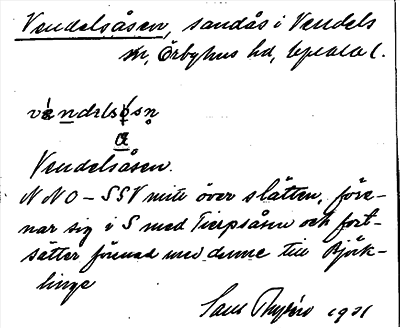 Vendelsåsen, sandås i Vendels
sn, Örbyhus hd, Upsala l.
Vendelsåsen.
NNO–SSV mitt över slätten, före-
nar sig i S med Tierpsåsen och fort-
sätter förenad med denne till Björk-
linge
1931